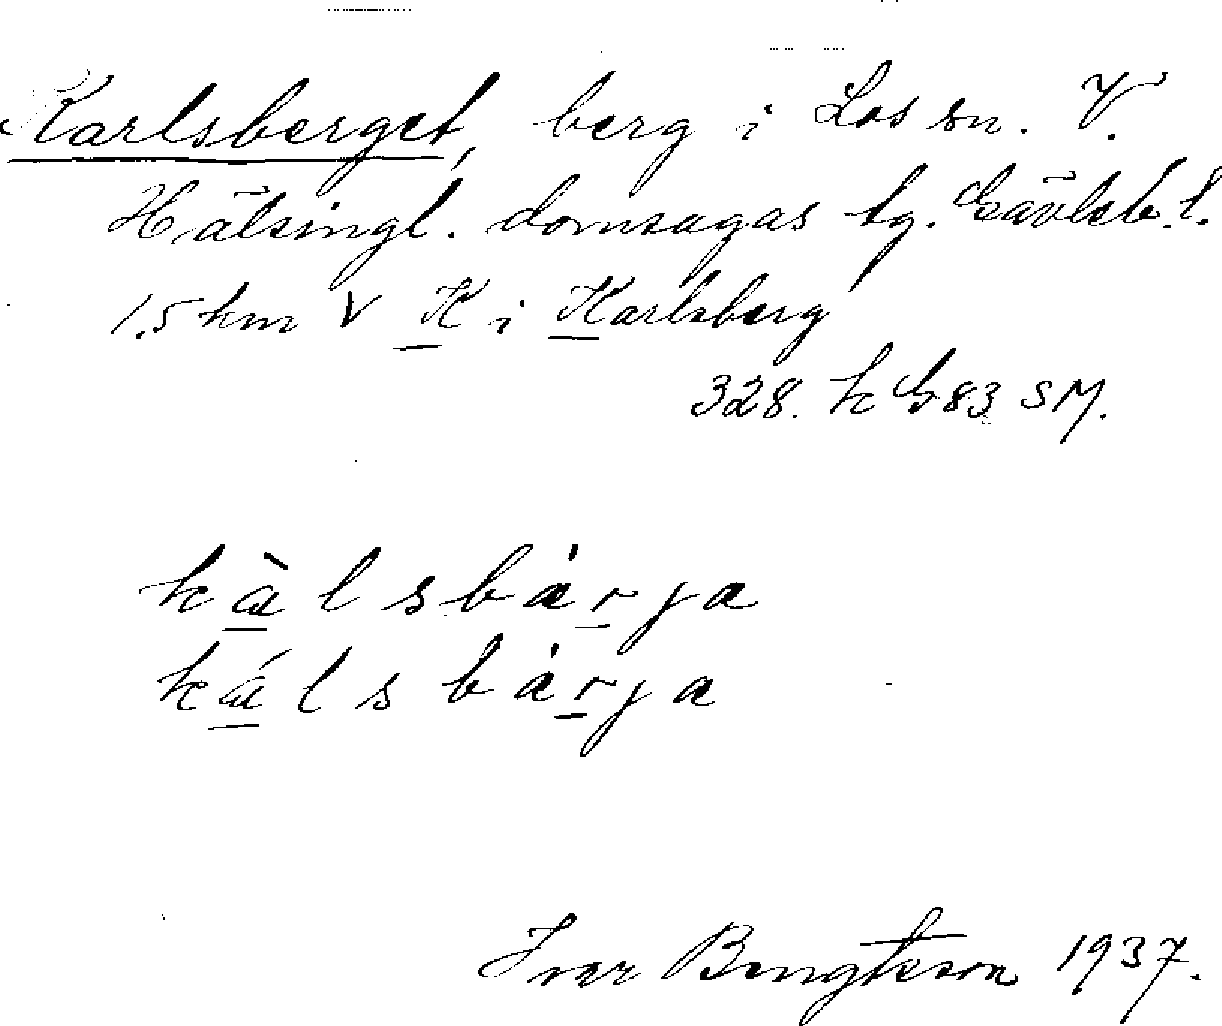 Karlsberget, berg i Los sn. V.
Hälsingl. domsagas tg. Gävleb. l.
1.5 km V K i Karlsberg
328. k G83 SM.
kàlsbárja
kálsbárja
Ivar Bengtsson 1937.